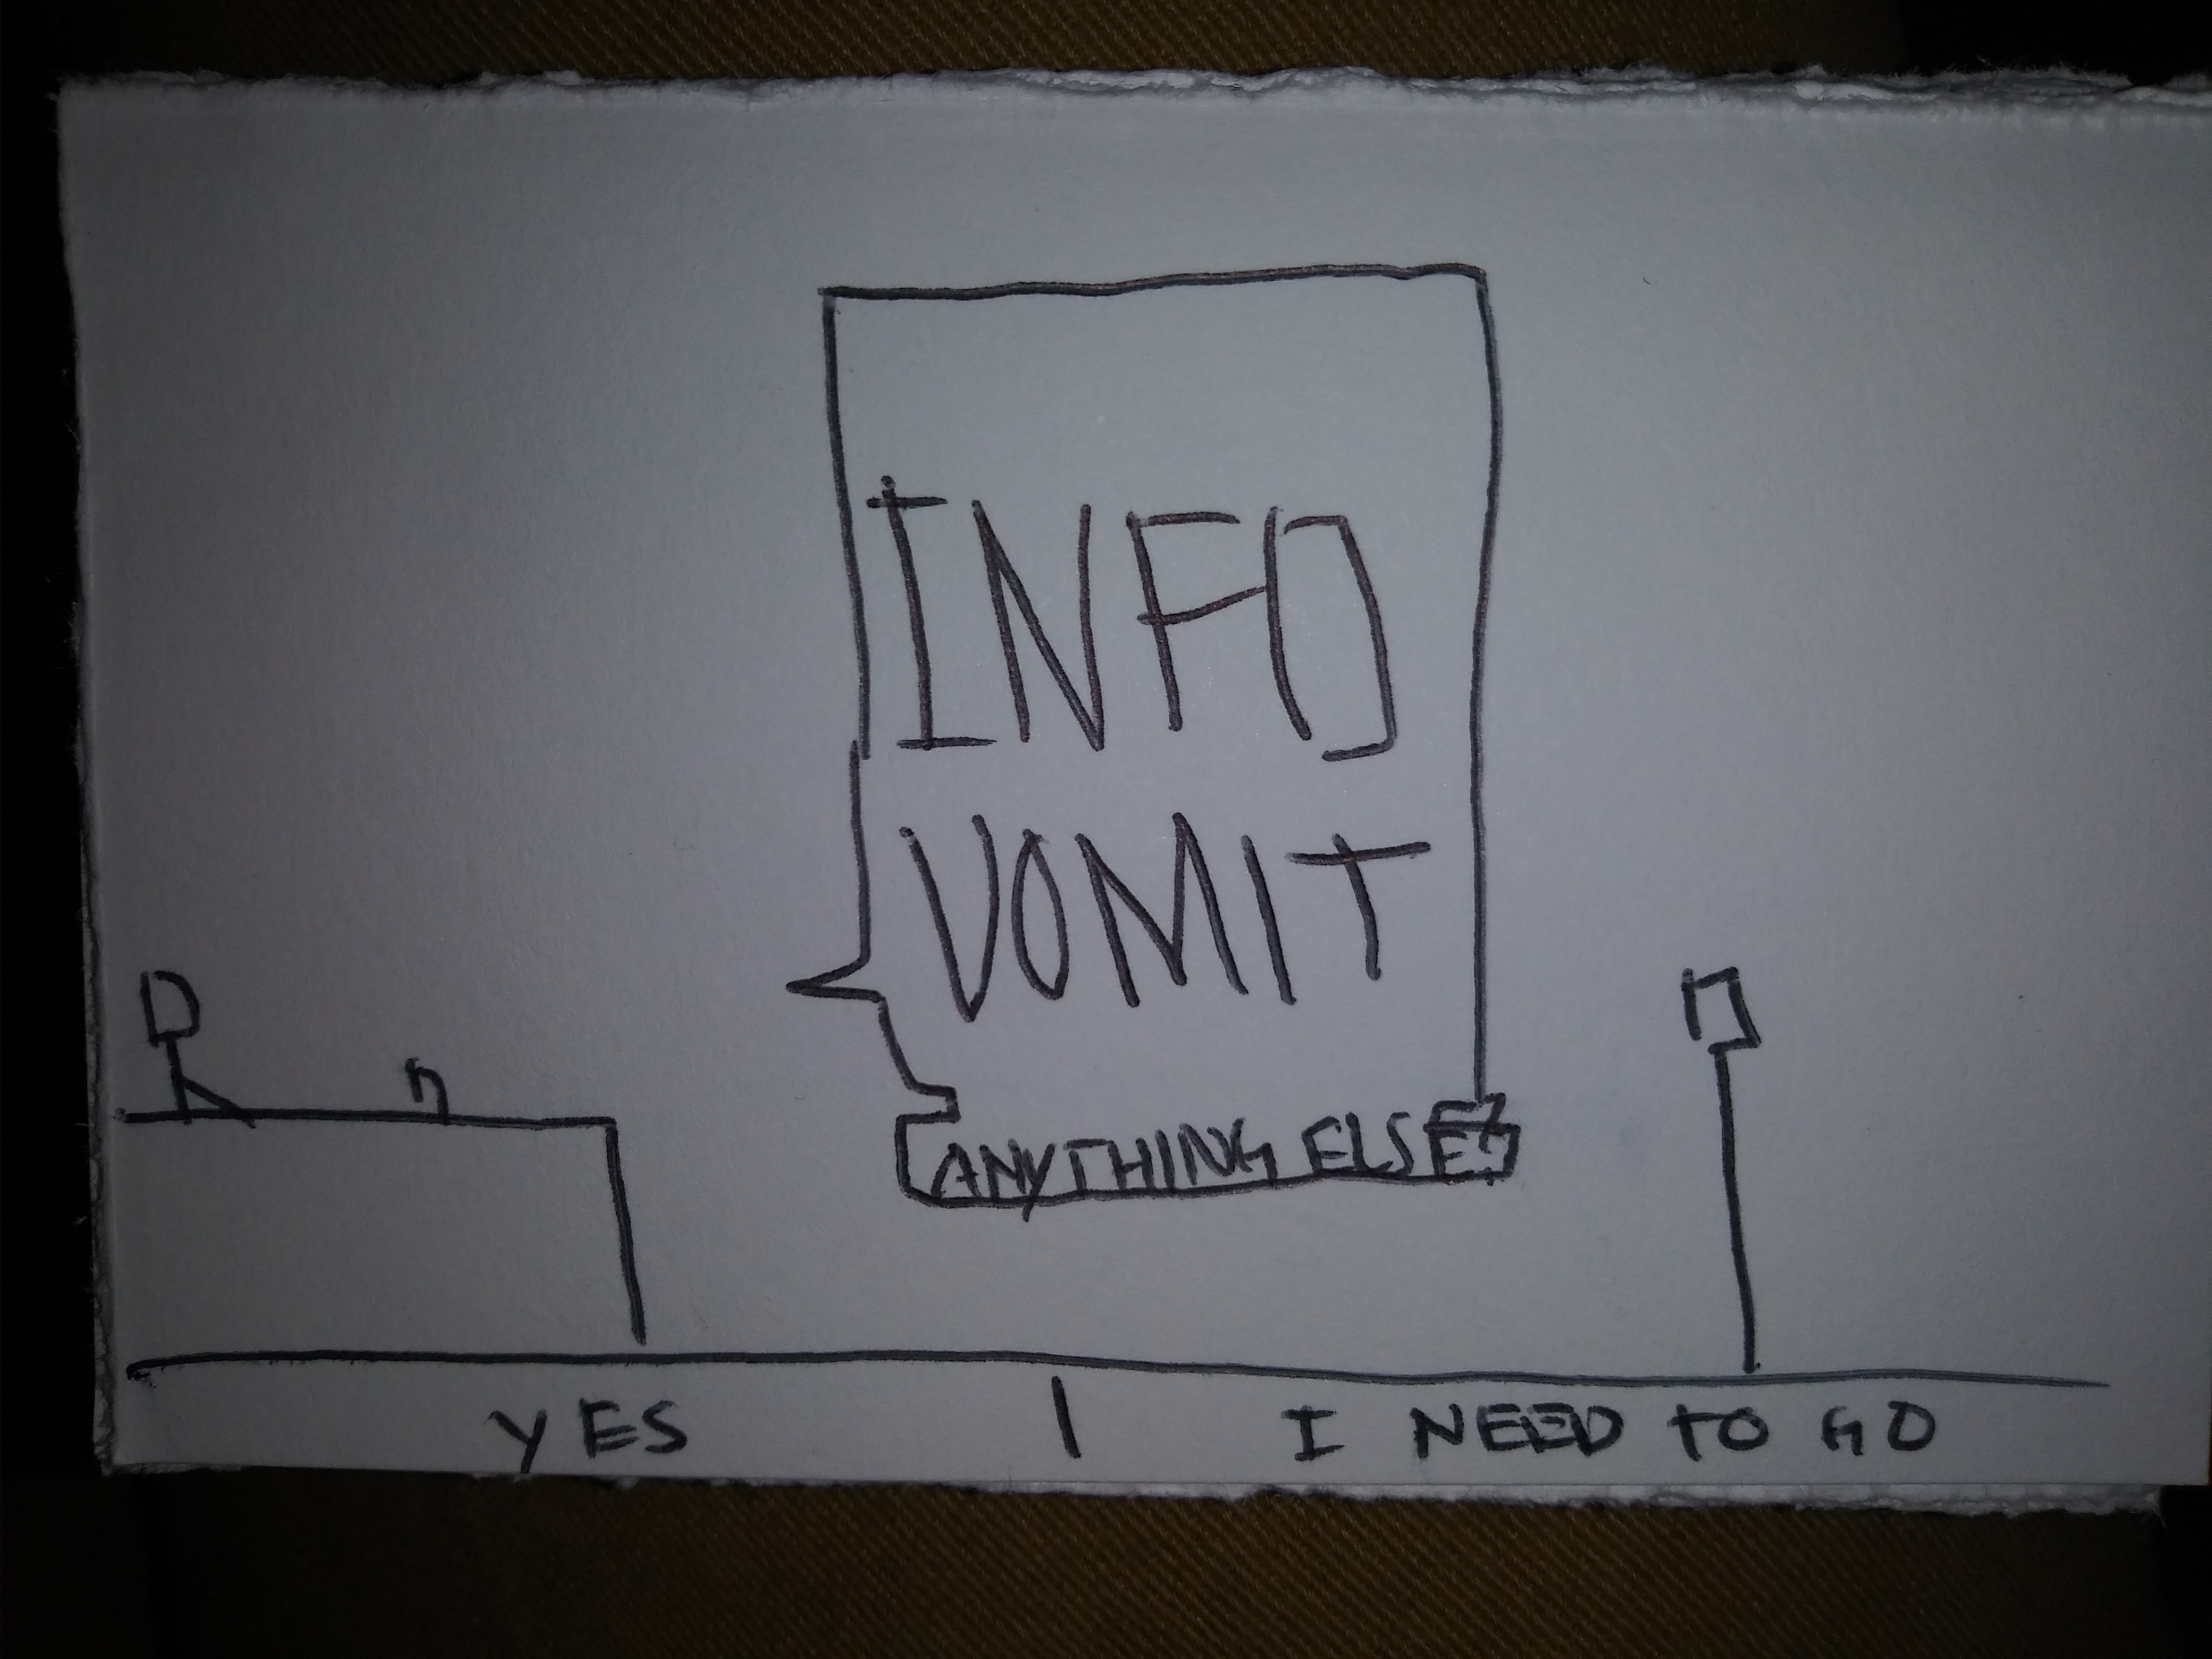 INFO
VOMIT
ANYTHING ELSE?
YES | I NEED TO GO